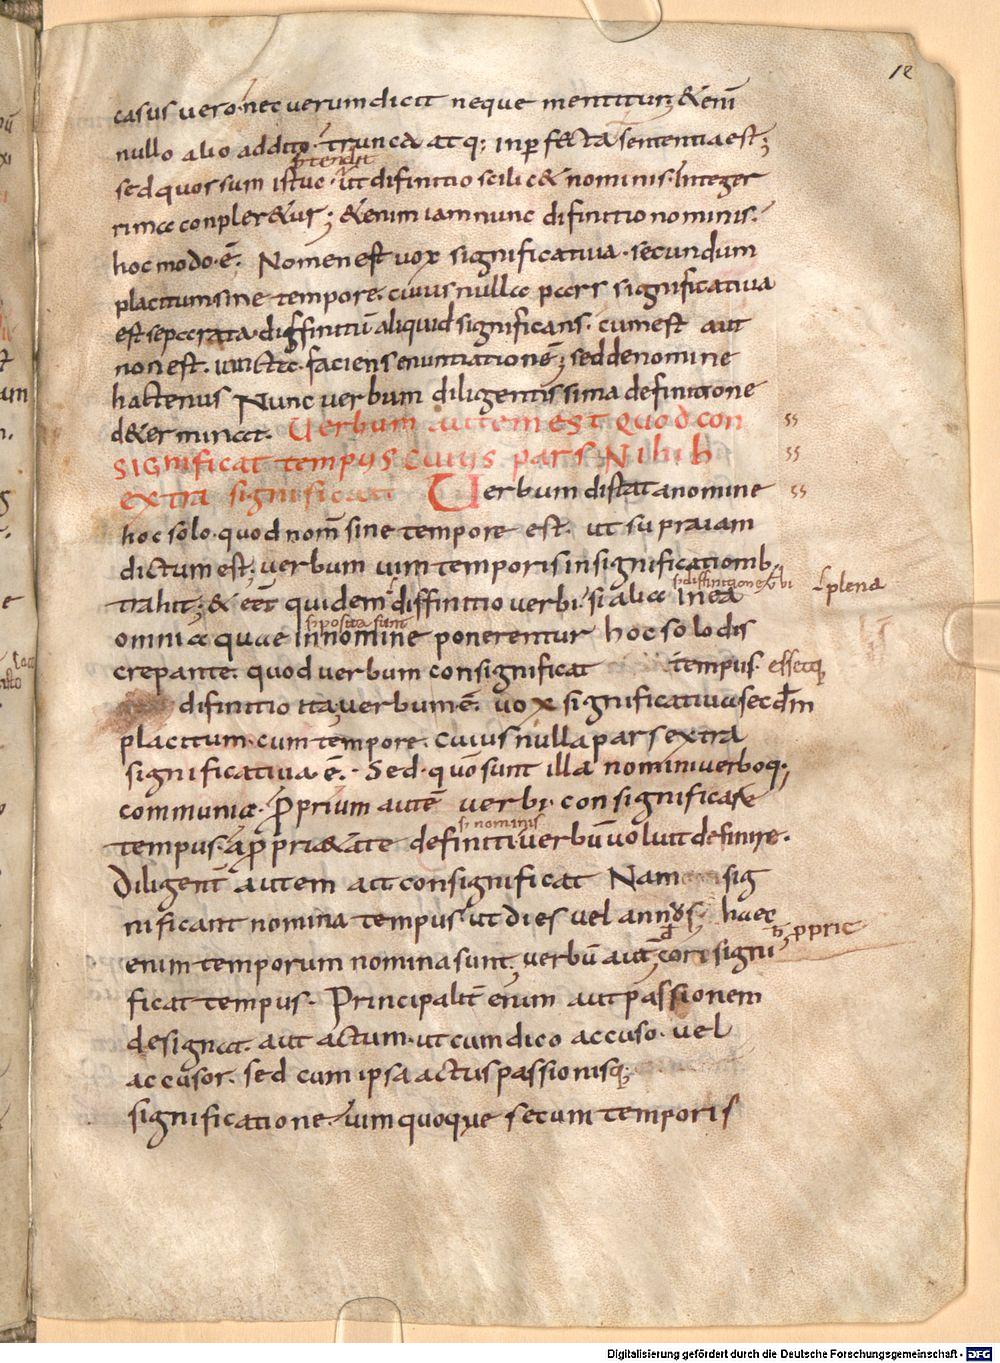 12
casus vero· nec verum dicit neque mentitur; & eni͂
nullo alio addito· trunca atq; inp̲fecta sententia est;
p̲tendit
sed quorsum istuc· ut difinitio scilic& nominis· Integer
rima conpler&ur; & enim iam nunc difinitio nominis.
hoc modo· ē. Nomen est vox significativa· secundum
placitum sine tempore. cuius nulla pars significativa
est separata· diffinitū aliquid significans. cum est aut
non est. faciens enuntiationē; sed de nomine
hactenus Nunc verbum diligentissima definitione
d&erminat. Verbum autem est quod con
significat tempus cuius pars Nihil
extra significat Verbum distat a nomine
ss
ss
ss
hoc solo· quod nom̄ sine tempore est. ut supra iam
dictum est; verbum vim temporis in significationib;
trahit; & quidem diffinitio verbi· si alia in ea
s· diffinitione verbi
plena
omnia quae in nomine ponerentur hoc solo dis
s· posita sunt
crepante. quod verbum consignificat tempus· essetq;
difinitio ita; verbum ē. vox significativa secdm̄
placitum. cum tempore. cuius nulla pars extra
significativa· ē. Sed· quō sunt illa nomini verboq;
communia. p̄prium autē verbi· consignificare
tempus· ap̄pri&ate definiti verbū voluit definire.
s· nominis
Diligent̄ autem ait consignificat Nam sig
nificant nomina tempus· ut dies vel annus; haec
enim temporum nomina sunt; verbū aut̄ consigni
p̲prie
ficat tempus. Principalit̄ enim aut passionem
designat. aut actum· ut cum dico accuso· vel
accusor. sed cum ipsa actus passionisq;
significatione· vim quoque secum temporis
Digitalisierung gefördert durch die Deutsche Forschungsgemeinschaft - DFG